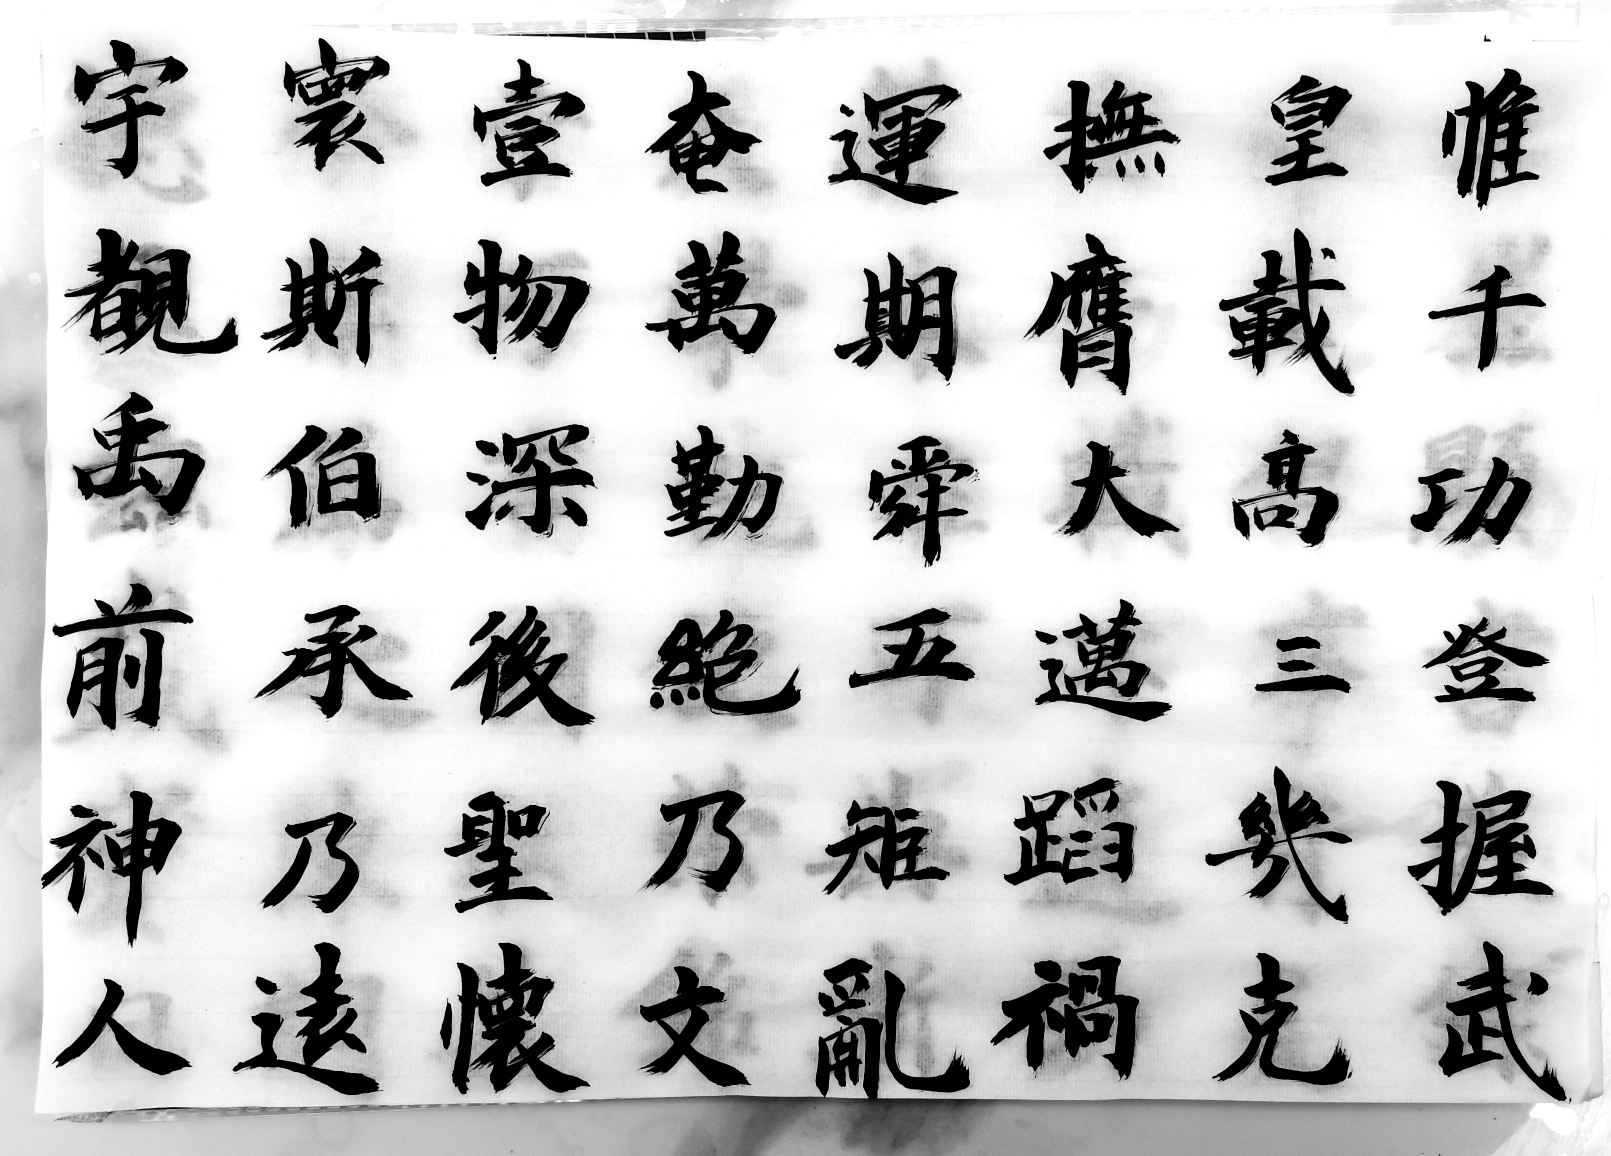 惟千功登握武
皇載高三幾克
撫膺大邁蹈禍
運期舜五矩亂
奄萬勤絶乃文
壹物深後聖懷
寰斯伯承乃遠
宇覩禹前神人